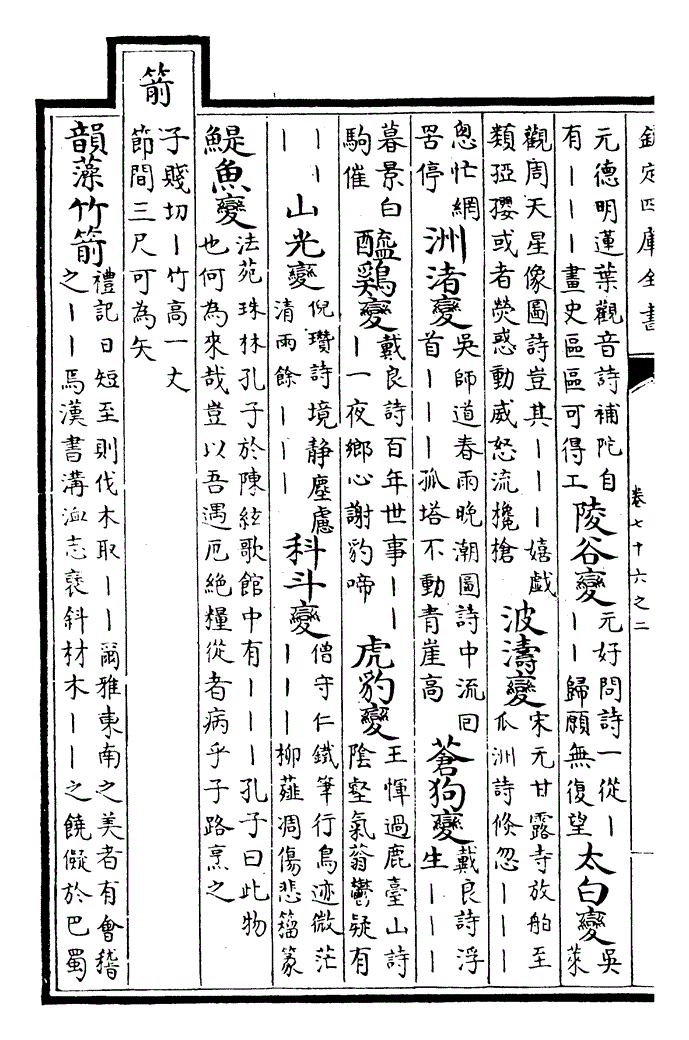 欽定四庫全書
卷七十六之二
元德明蓮葉觀音詩補陀自
有丨丨丨畫史區區可得工
陵谷變
元好問詩一從丨
丨丨歸願無復望
太白變
吳
萊
觀周天星像圖詩豈其丨丨丨嬉戲
類孲孾或者熒惑動威怒流欃槍
波濤變
宋元甘露寺放舶至
瓜洲詩倐忽丨丨丨
怱忙網
罟停
洲渚變
吳師道春雨晚潮圖詩中流回
首丨丨丨孤塔不動青崖高
蒼狗變
戴良詩浮
生丨丨丨
暮景白
駒催
醯鷄變
戴良詩百年世事丨丨
丨一夜鄉心謝豹啼
虎豹變
王惲過鹿臺山詩
陰壑氣蓊鬱疑有
丨丨
丨
山光變
倪瓚詩境静塵慮
清雨餘丨丨丨
科斗變
僧守仁鐵筆行鳥迹微茫
丨丨丨柳薤凋傷悲籀篆
鯷魚變
法苑珠林孔子於陳絃歌館中有丨丨丨孔子曰此物
也何為來哉豈以吾遇厄絶糧從者病乎子路烹之
箭
子賤切丨竹高一丈
節間三尺可為矢
韻藻竹箭
禮記日短至則伐木取丨丨爾雅東南之美者有會稽
之丨丨焉漢書溝洫志褒斜材木丨丨之饒儗於巴蜀